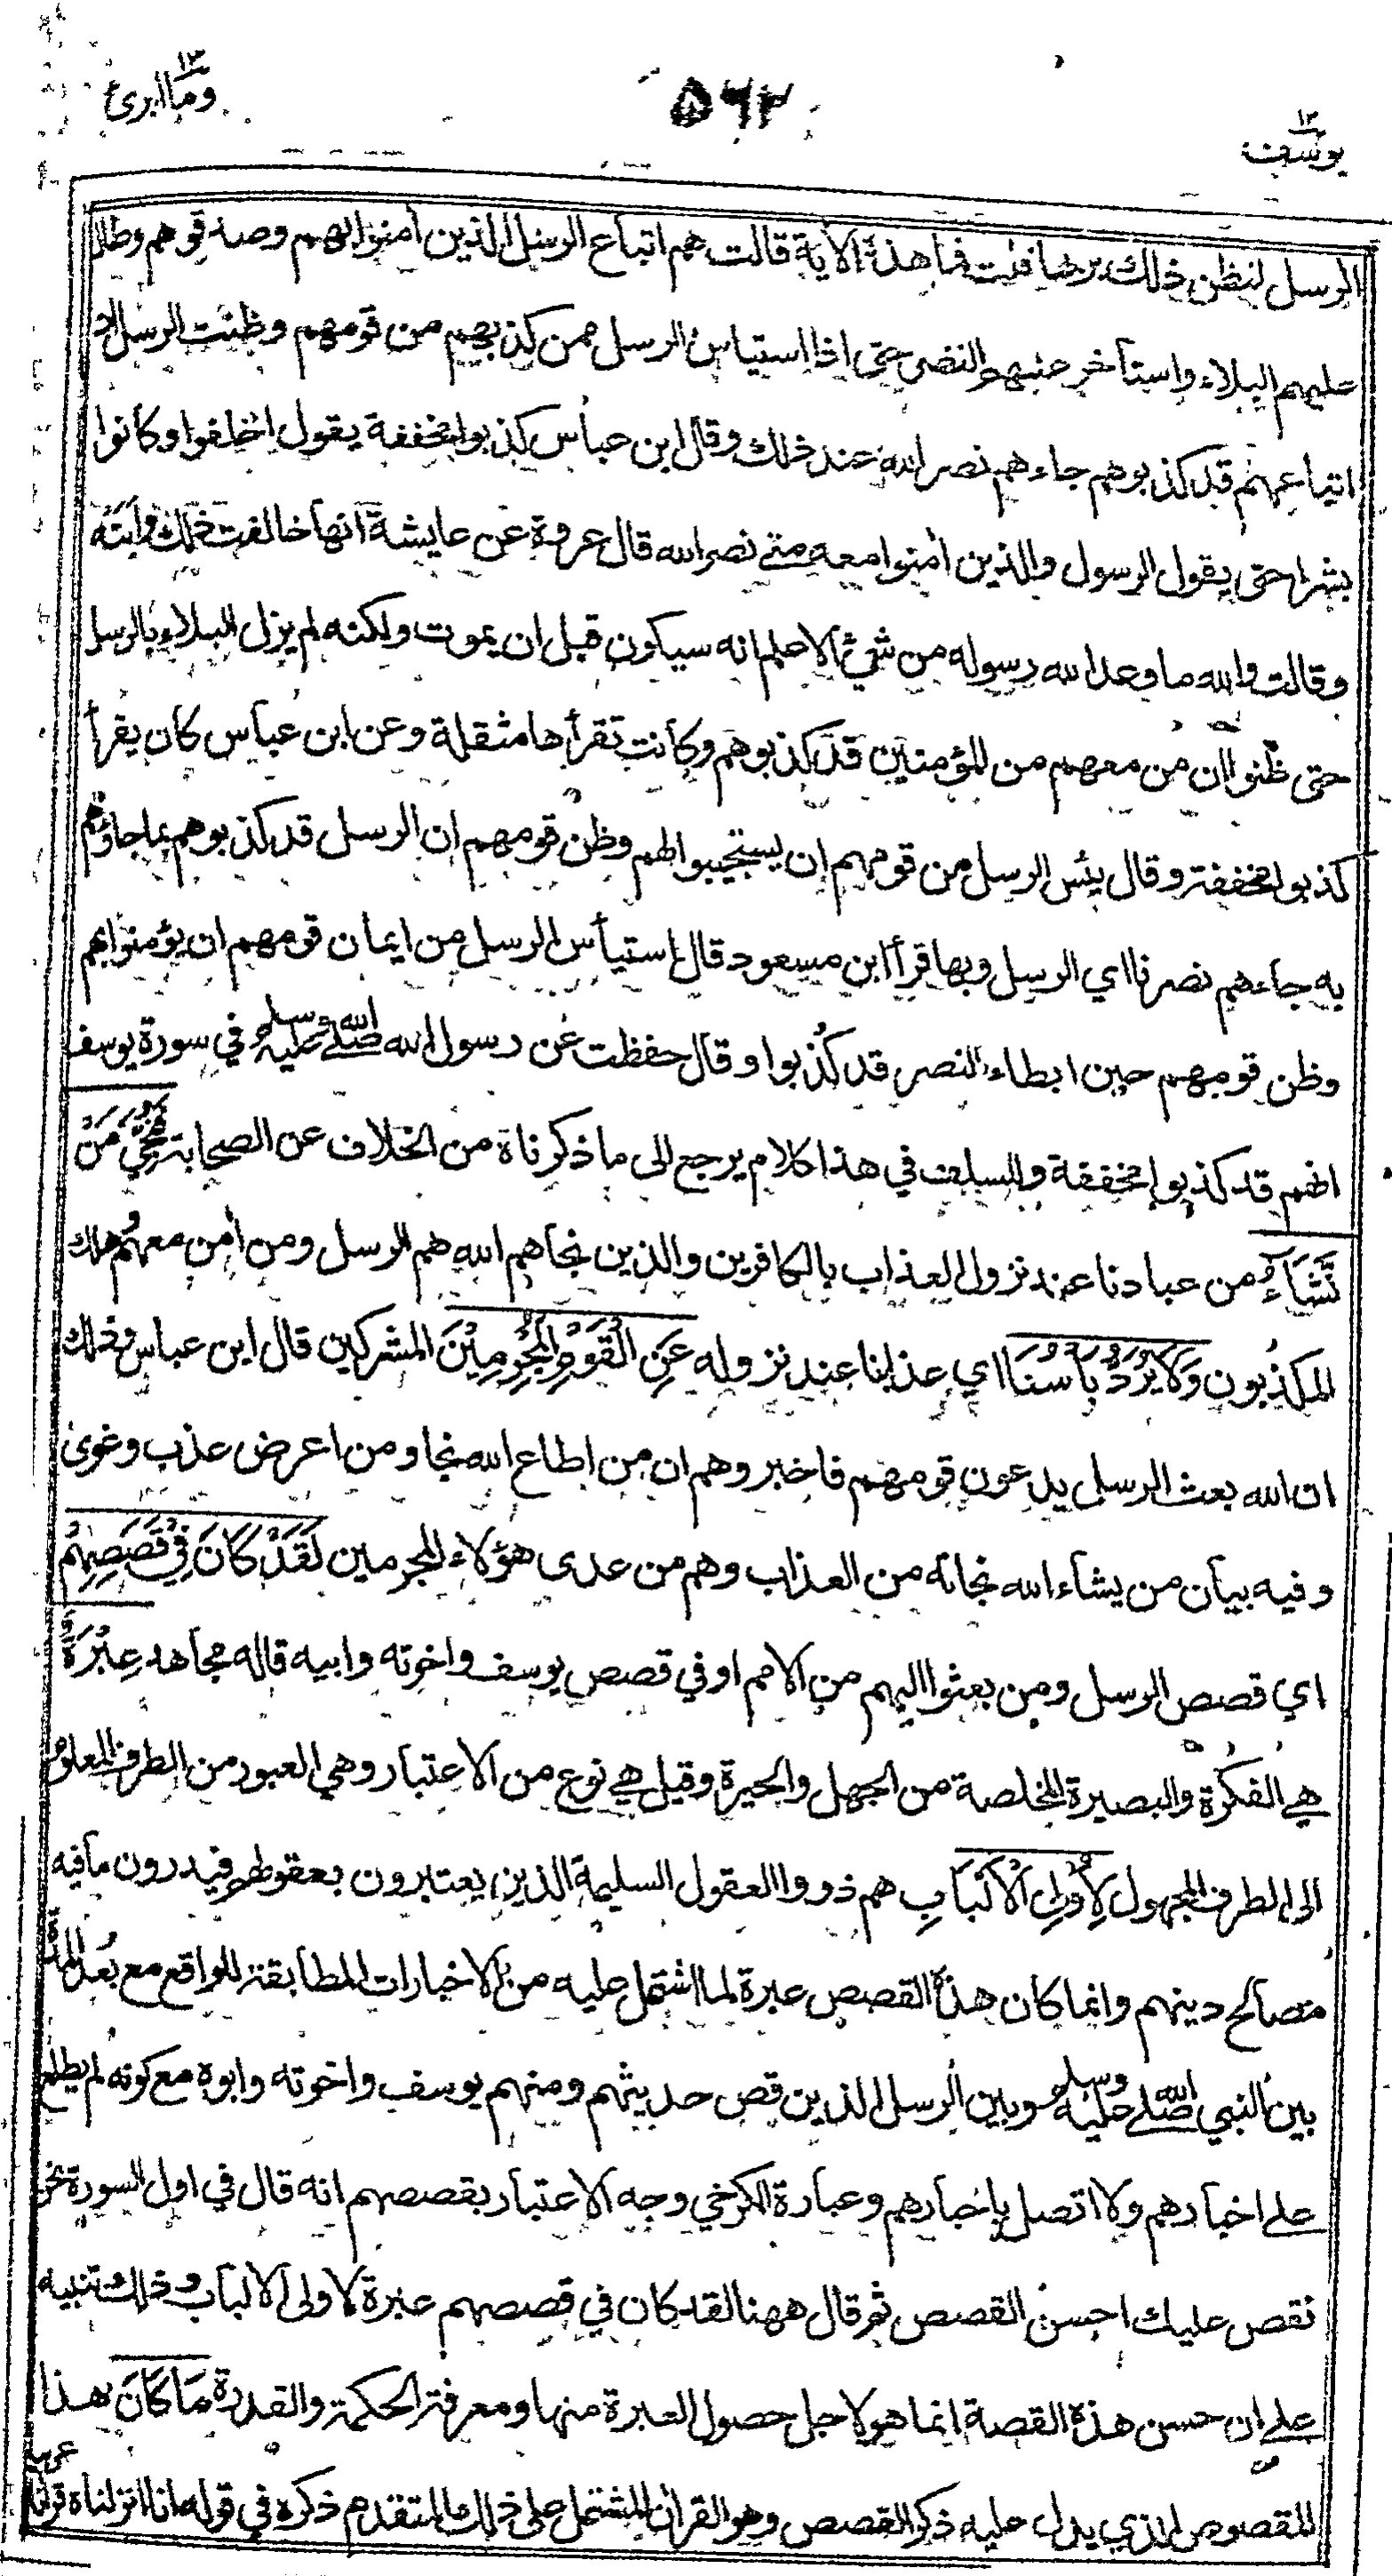 وما ابرئ ١٣
٥٦٢
يوسف ١٢
الرسل لتظن ذلك بربها قلت فما هذه الاية قالت هم اتباع الرسل الذين امنوا بربهم وصدقوهم وطال
عليهم البلاء واستأخر عنهم النصر حتى اذا استياس الرسل ممن كذبهم من قومهم وظنت الرسل ان
اتباعهم قد كذبوهم جاءهم نصر الله عند ذلك وقال ابن عباس كذبوا مخففة يقول اخلفوا وكانوا
بشرا حتى يقول الرسول والذين امنوا معه متى نصر الله قال عروة عن عايشة انها خالفت ذلك وابته
وقالت والله ما وعد الله رسوله من شئ الا علم انه سيكون قبل ان يموت ولكنه لم يزل البلاء بالرسل
حتى ظنوا ان من معهم من المؤمنين قد كذبوهم وكانت تقرأها مثقلة وعن ابن عباس كان يقرأ
كذبوا مخففة وقال يئس الرسل من قومهم ان يستجيبوا لهم وظن قومهم ان الرسل قد كذبوهم بما جاؤهم
به جاءهم نصرنا اي الرسل وبها قرأ ابن مسعود قال استيأس الرسل من ايمان قومهم ان يؤمنوا بهم
وظن قومهم حين ابطاء النصر قد كُذبوا وقال حفظت عن رسول الله صلى الله عليه وسلم في سورة يوسف
انهم قد كذبوا مخففة وللسلف في هذا كلام يرجع الى ما ذكرناه من الخلاف عن الصحابة فَنُجِّيَ مَنْ
نَّشَآءُ من عبادنا عند نزول العذاب بالكافرين والذين نجاهم الله هم الرسل ومن أمن معهم وهلك
المكذبون وَلَا يُرَدُّ بَأْسُنَا اي عذابنا عند نزوله عَنِ الْقَوْمِ الْمُجْرِمِيْنَ المشركين قال ابن عباس وذلك
ان الله بعث الرسل يدعون قومهم فاخبروهم ان من اطاع الله نجا ومن اعرض عذب وغوى
وفيه بيان من يشاء الله نجاته من العذاب وهم من عدى هؤلاء المجرمين لَقَدْ كَانَ فِيْ قَصَصِهِمْ
اي قصص الرسل ومن بعثوا اليهم من الامم او في قصص يوسف واخوته وابيه قاله مجاهد عِبْرَةٌ
هي الفكرة والبصيرة المخلصة من الجهل والحيرة وقيل هي نوع من الاعتبار وهي العبور من الطرف المعلوم
الى الطرف المجهول لِأُولِى الْأَلْبَابِ هم ذووا العقول السليمة الذين يعتبرون بعقولهم فيدرون ما فيه
مصالح دينهم وانما كان هذه القصص عبرة لما اشتمل عليه من الاخبارات المطابقة للواقع مع بُعد المدة
بين النبي صلى الله عليه وسلم وبين الرسل الذين قص حديثهم ومنهم يوسف واخوته وابوه مع كونه لم يطلع
على اخبارهم ولا اتصل باخبارهم وعبارة الكرخي وجه الاعتبار بقصصهم انه قال في اول السورة نحن
نقص عليك احسن القصص ثم قال ههنا لقد كان في قصصهم عبرة لاولى الالباب وذلك تنبيه
على ان حسن هذه القصة انما هو لاجل حصول العبرة منها ومعرفة الحكمة والقدرة مَا كَانَ هذا
المقصوص الذي يدل عليه ذكر القصص وهو القرآن المشتمل على ذلك المتقدم ذكره في قوله انا انزلناه قرآنا عربيا